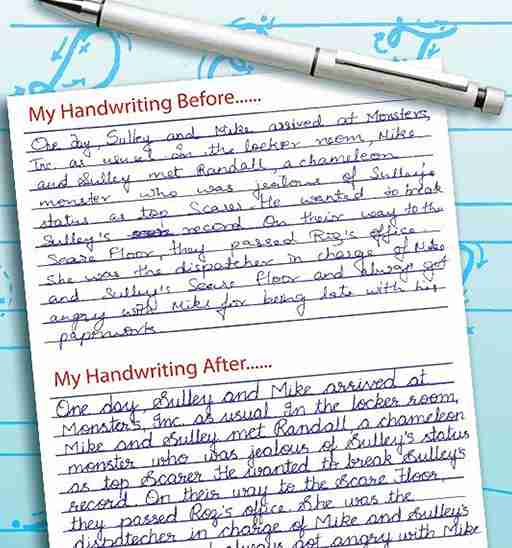 My Handwriting Before......
One day, Sulley and Mike arrived at Monsters,
Inc as usual In the locker room, Mike
and Sulley met Randall, a chameleon
monster who was jealous of Sulley's
status as top Scarer He wanted to break
Sulley's record On their way to the
Scare Floor, they passed Roz's office.
She was the dispatcher in charge of Mike
and Sulley's Scare Floor and always got
angry with Mike for being late with his
paperwork
My Handwriting After......
One day, Sulley and Mike arrived at
Monster's, Inc. as usual In the locker room,
Mike and Sulley met Randall, a chameleon
monster who was jealous of Sulley's status
as top Scarer He wanted to break Sulley's
record. On their way to the Scare Floor,
they passed Roz's office. She was the
dispatcher in charge of Mike and Sulley's
always got angry with Mike